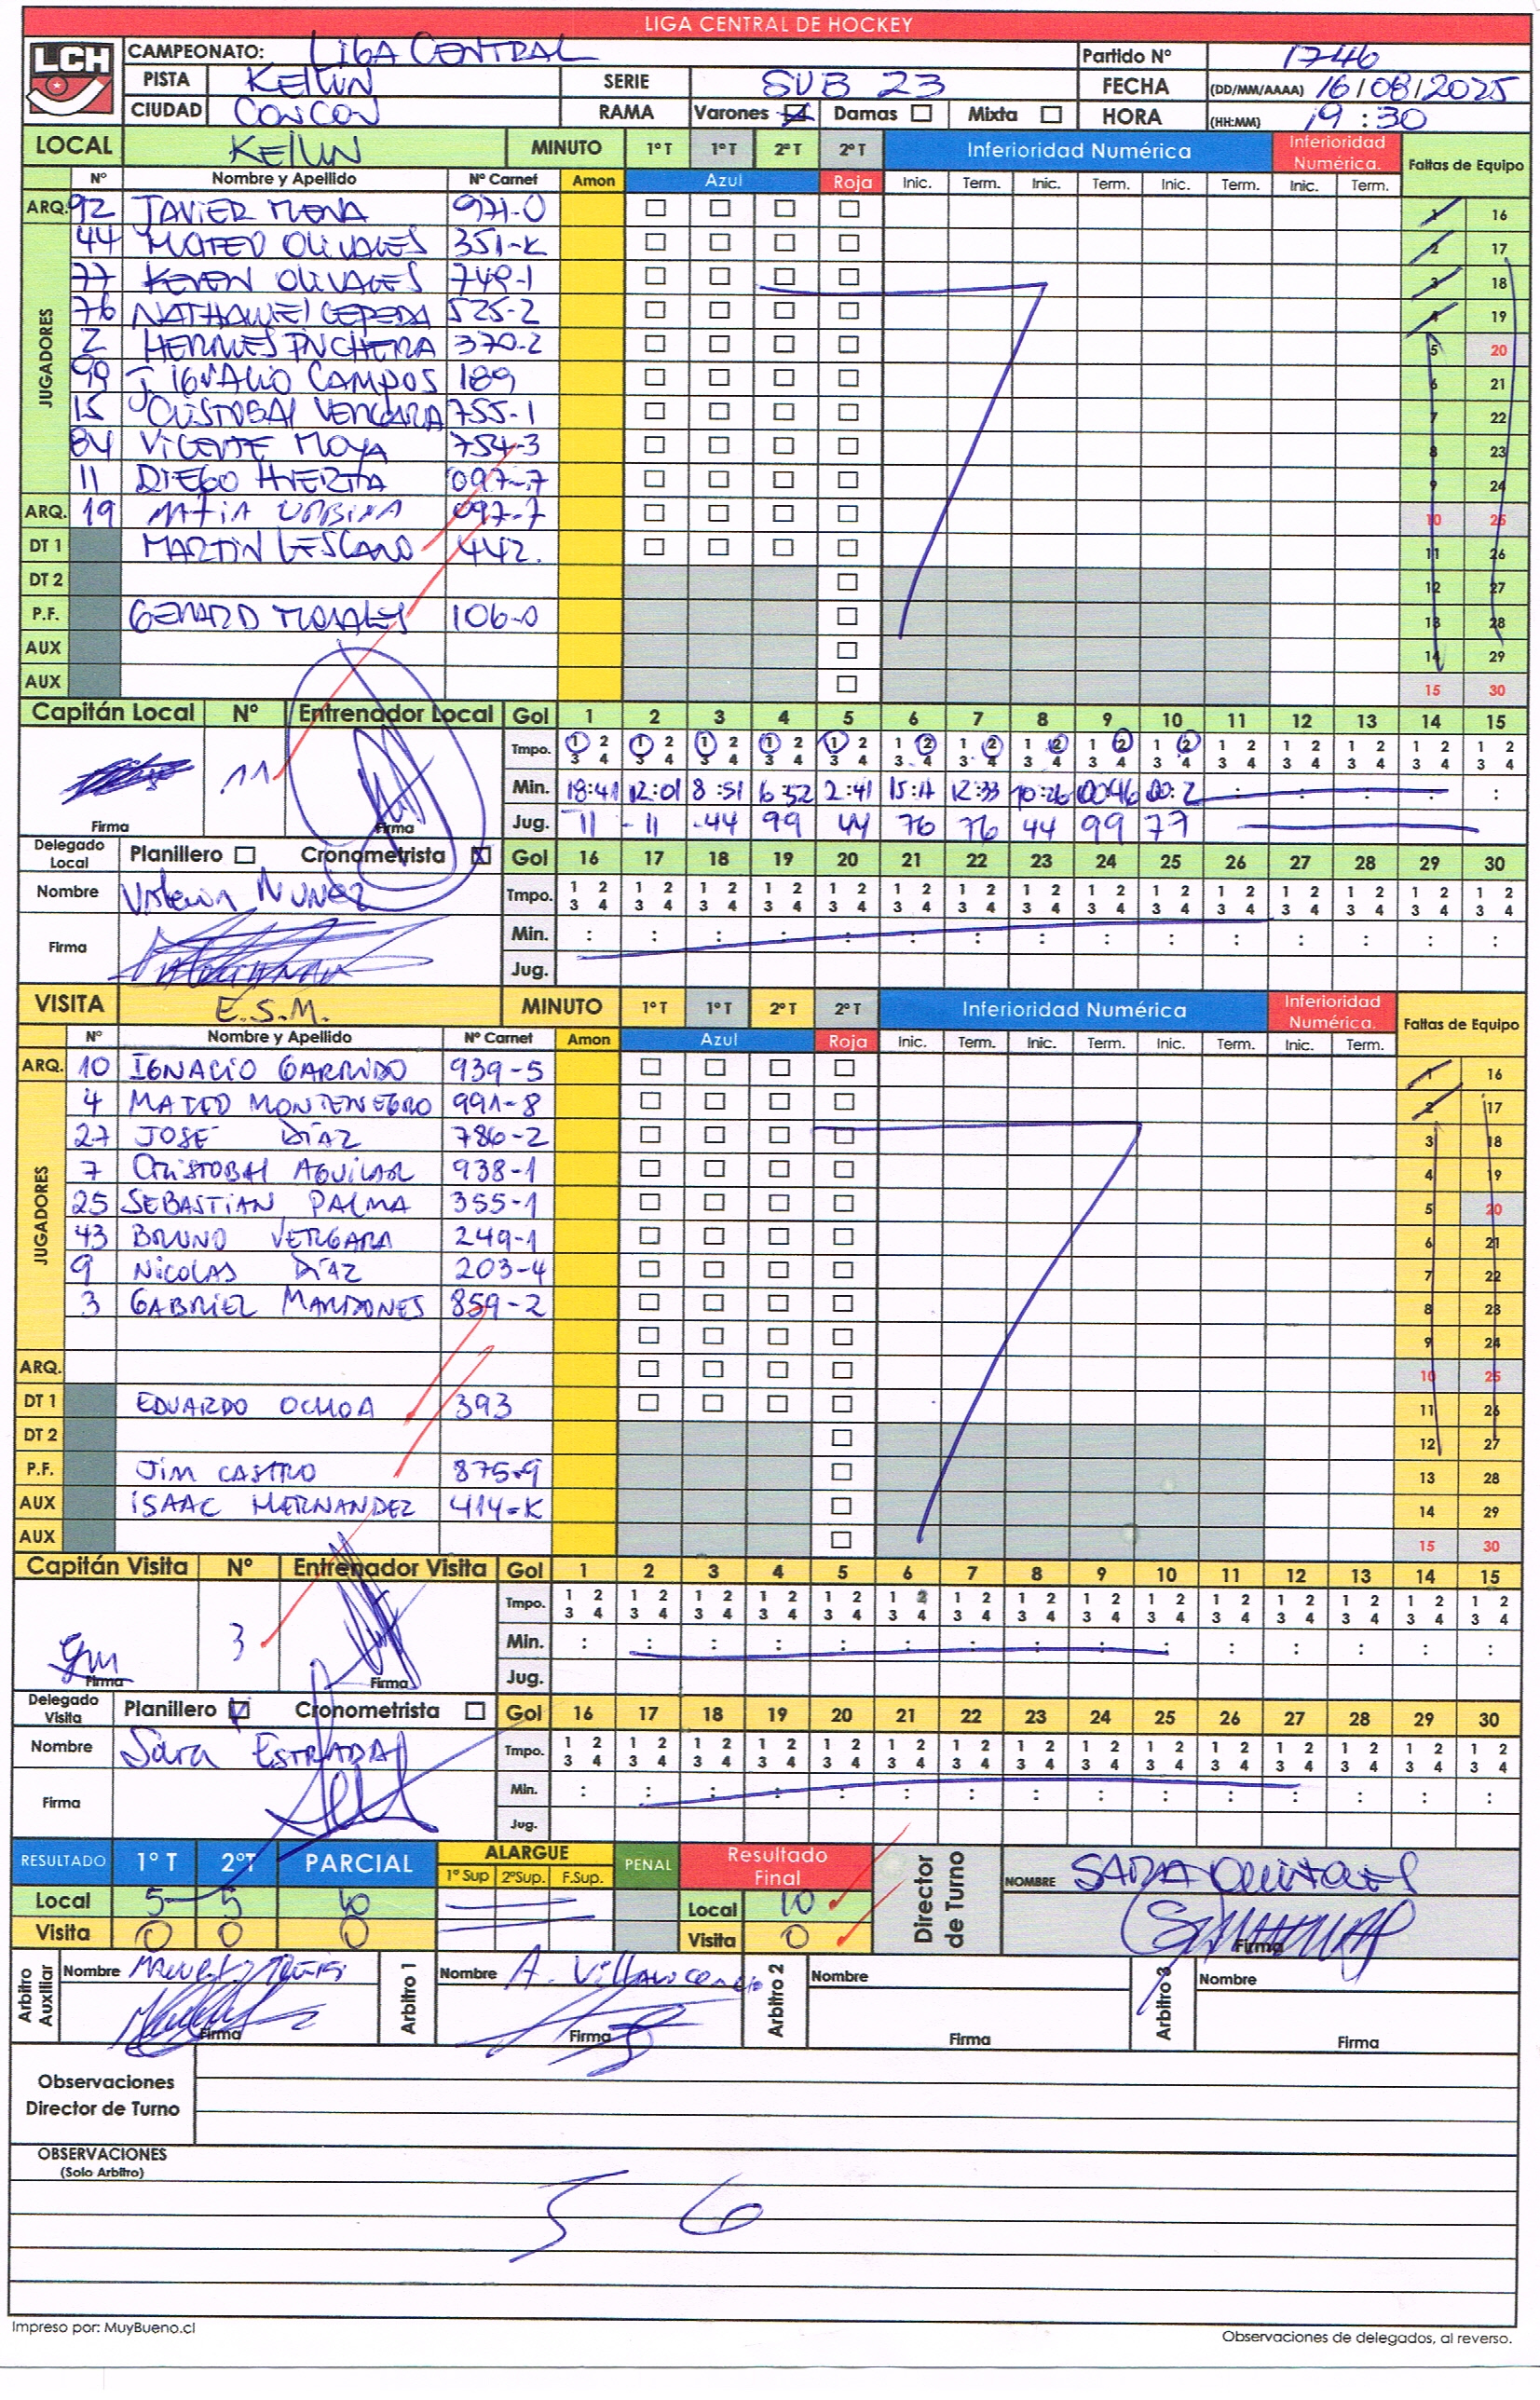 LIGA CENTRAL DE HOCKEY
LCH
CAMPEONATO: LIGA CENTRAL Partido Nº 1746
PISTA KEILUN SERIE SUB 23 FECHA (DD/MM/AAAA) 16/08/2025
CIUDAD CONCON RAMA Varones Damas Mixta HORA (HH:MM) 19:30
LOCAL KEILUN MINUTO 1º T 1º T 2º T 2º T Inferioridad Numérica Inferioridad Numérica. Faltas de Equipo
Nº Nombre y Apellido Nº Carnet Amon Azul Roja Inic. Term. Inic. Term. Inic. Term. Inic. Term.
ARQ. 92 JAVIER MENA 971-0 1 16
JUGADORES
44 MATEO OLIVARES 351-K 2 17
77 KEVEN OLIVARES 749-1 3 18
76 NATHANIEL CEPEDA 525-2 4 19
2 HERMES 370-2 5 20
99 J. IGNACIO CAMPOS 189 6 21
15 CRISTOBAL VERGARA 755-1 7 22
84 VICENTE MOYA 754-3 8 23
11 DIEGO HUERTA 097-7 9 24
ARQ. 19 MATIA URBINA 097-7 10 25
DT 1 MARTIN LESCANO 442. 11 26
DT 2 12 27
P.F. GERARD MORALES 106-0 13 28
AUX 14 29
AUX 15 30
Capitán Local Nº Entrenador Local Gol 1 2 3 4 5 6 7 8 9 10 11 12 13 14 15
Tmpo. 1 2 3 4 1 2 3 4 1 2 3 4 1 2 3 4 1 2 3 4 1 2 3 4 1 2 3 4 1 2 3 4 1 2 3 4 1 2 3 4 1 2 3 4 1 2 3 4 1 2 3 4 1 2 3 4 1 2 3 4
11 Min. 18:41 12:01 8:51 6:52 2:41 15:11 12:33 10:26 00:46 00:2 : : : : :
Firma Firma Jug. 11 - 11 -44 99 44 76 76 44 99 77
Delegado Local Planillero Cronometrista Gol 16 17 18 19 20 21 22 23 24 25 26 27 28 29 30
Nombre NUÑEZ Tmpo. 1 2 3 4 1 2 3 4 1 2 3 4 1 2 3 4 1 2 3 4 1 2 3 4 1 2 3 4 1 2 3 4 1 2 3 4 1 2 3 4 1 2 3 4 1 2 3 4 1 2 3 4 1 2 3 4 1 2 3 4
Firma Min. : : : : : : : : : : : : : : :
Jug.
VISITA E.S.M. MINUTO 1º T 1º T 2º T 2º T Inferioridad Numérica Inferioridad Numérica. Faltas de Equipo
Nº Nombre y Apellido Nº Carnet Amon Azul Roja Inic. Term. Inic. Term. Inic. Term. Inic. Term.
ARQ. 10 IGNACIO GARRIDO 939-5 1 16
JUGADORES
4 MATEO MONTENEGRO 991-8 2 17
27 JOSÉ DÍAZ 786-2 3 18
7 CRISTOBAL AGUILAR 938-1 4 19
25 SEBASTIAN PALMA 355-1 5 20
43 BRUNO VERGARA 249-1 6 21
9 NICOLAS DÍAZ 203-4 7 22
3 GABRIEL MARDONES 859-2 8 23
9 24
ARQ. 10 25
DT 1 EDUARDO OCHOA 393 11 26
DT 2 12 27
P.F. JIM CASTRO 875-9 13 28
AUX ISAAC HERNANDEZ 414-K 14 29
AUX 15 30
Capitán Visita Nº Entrenador Visita Gol 1 2 3 4 5 6 7 8 9 10 11 12 13 14 15
Tmpo. 1 2 3 4 1 2 3 4 1 2 3 4 1 2 3 4 1 2 3 4 1 2 3 4 1 2 3 4 1 2 3 4 1 2 3 4 1 2 3 4 1 2 3 4 1 2 3 4 1 2 3 4 1 2 3 4 1 2 3 4
3 Min. : : : : : : : : : : : : : : :
Firma Firma Jug.
Delegado Visita Planillero Cronometrista Gol 16 17 18 19 20 21 22 23 24 25 26 27 28 29 30
Nombre Sara ESTRADA Tmpo. 1 2 3 4 1 2 3 4 1 2 3 4 1 2 3 4 1 2 3 4 1 2 3 4 1 2 3 4 1 2 3 4 1 2 3 4 1 2 3 4 1 2 3 4 1 2 3 4 1 2 3 4 1 2 3 4 1 2 3 4
Firma Min. : : : : : : : : : : : : : : :
Jug.
RESULTADO 1º T 2ºT PARCIAL ALARGUE PENAL Resultado Final Director de Turno NOMBRE SARA
1º Sup 2ºSup. F.Sup.
Local 5 5 10 Local 10
Visita 0 0 0 Visita 0 Firma
Arbitro Auxiliar Nombre Arbitro 1 Nombre A. Villavicencio Arbitro 2 Nombre Arbitro 3 Nombre
Firma Firma Firma Firma
Observaciones Director de Turno
OBSERVACIONES
(Solo Arbitro)
5 6
Impreso por: MuyBueno.cl
Observaciones de delegados, al reverso.